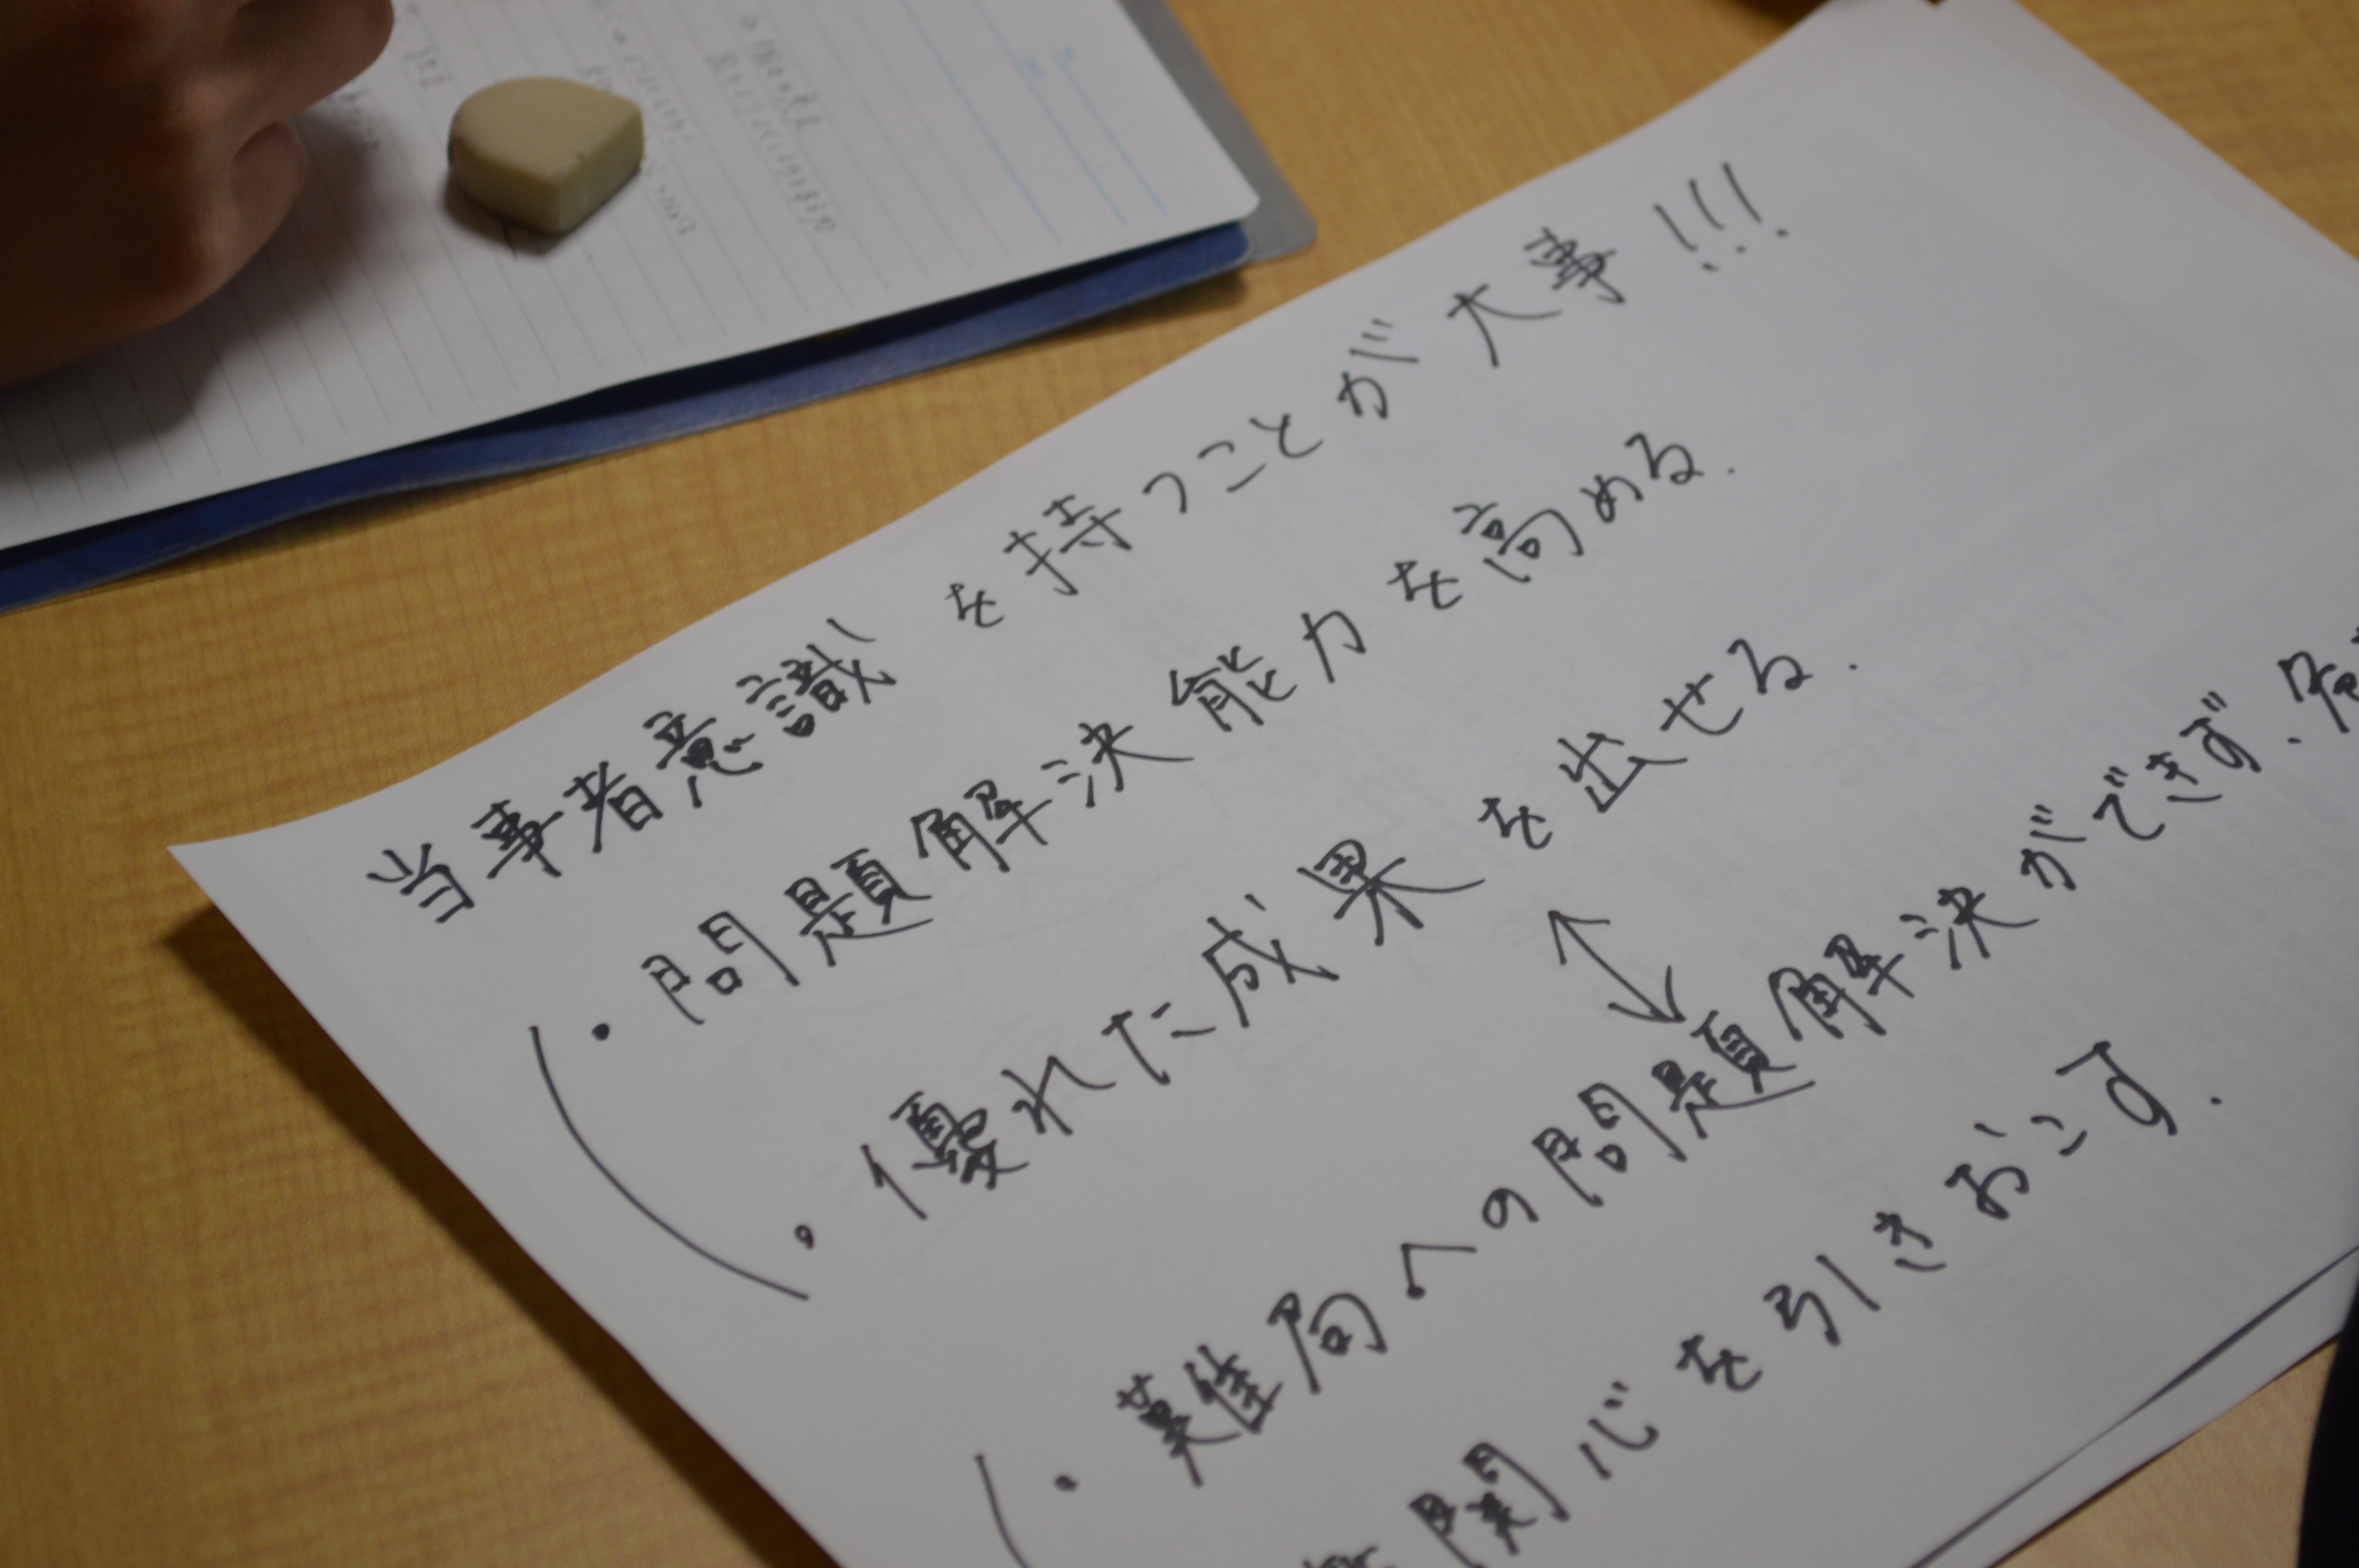 当事者意識を持つことが大事!!!
・問題解決能力を高める.
・優れた成果を出せる.
↔
・難局への問題解決ができず、
関心を引きおこす.